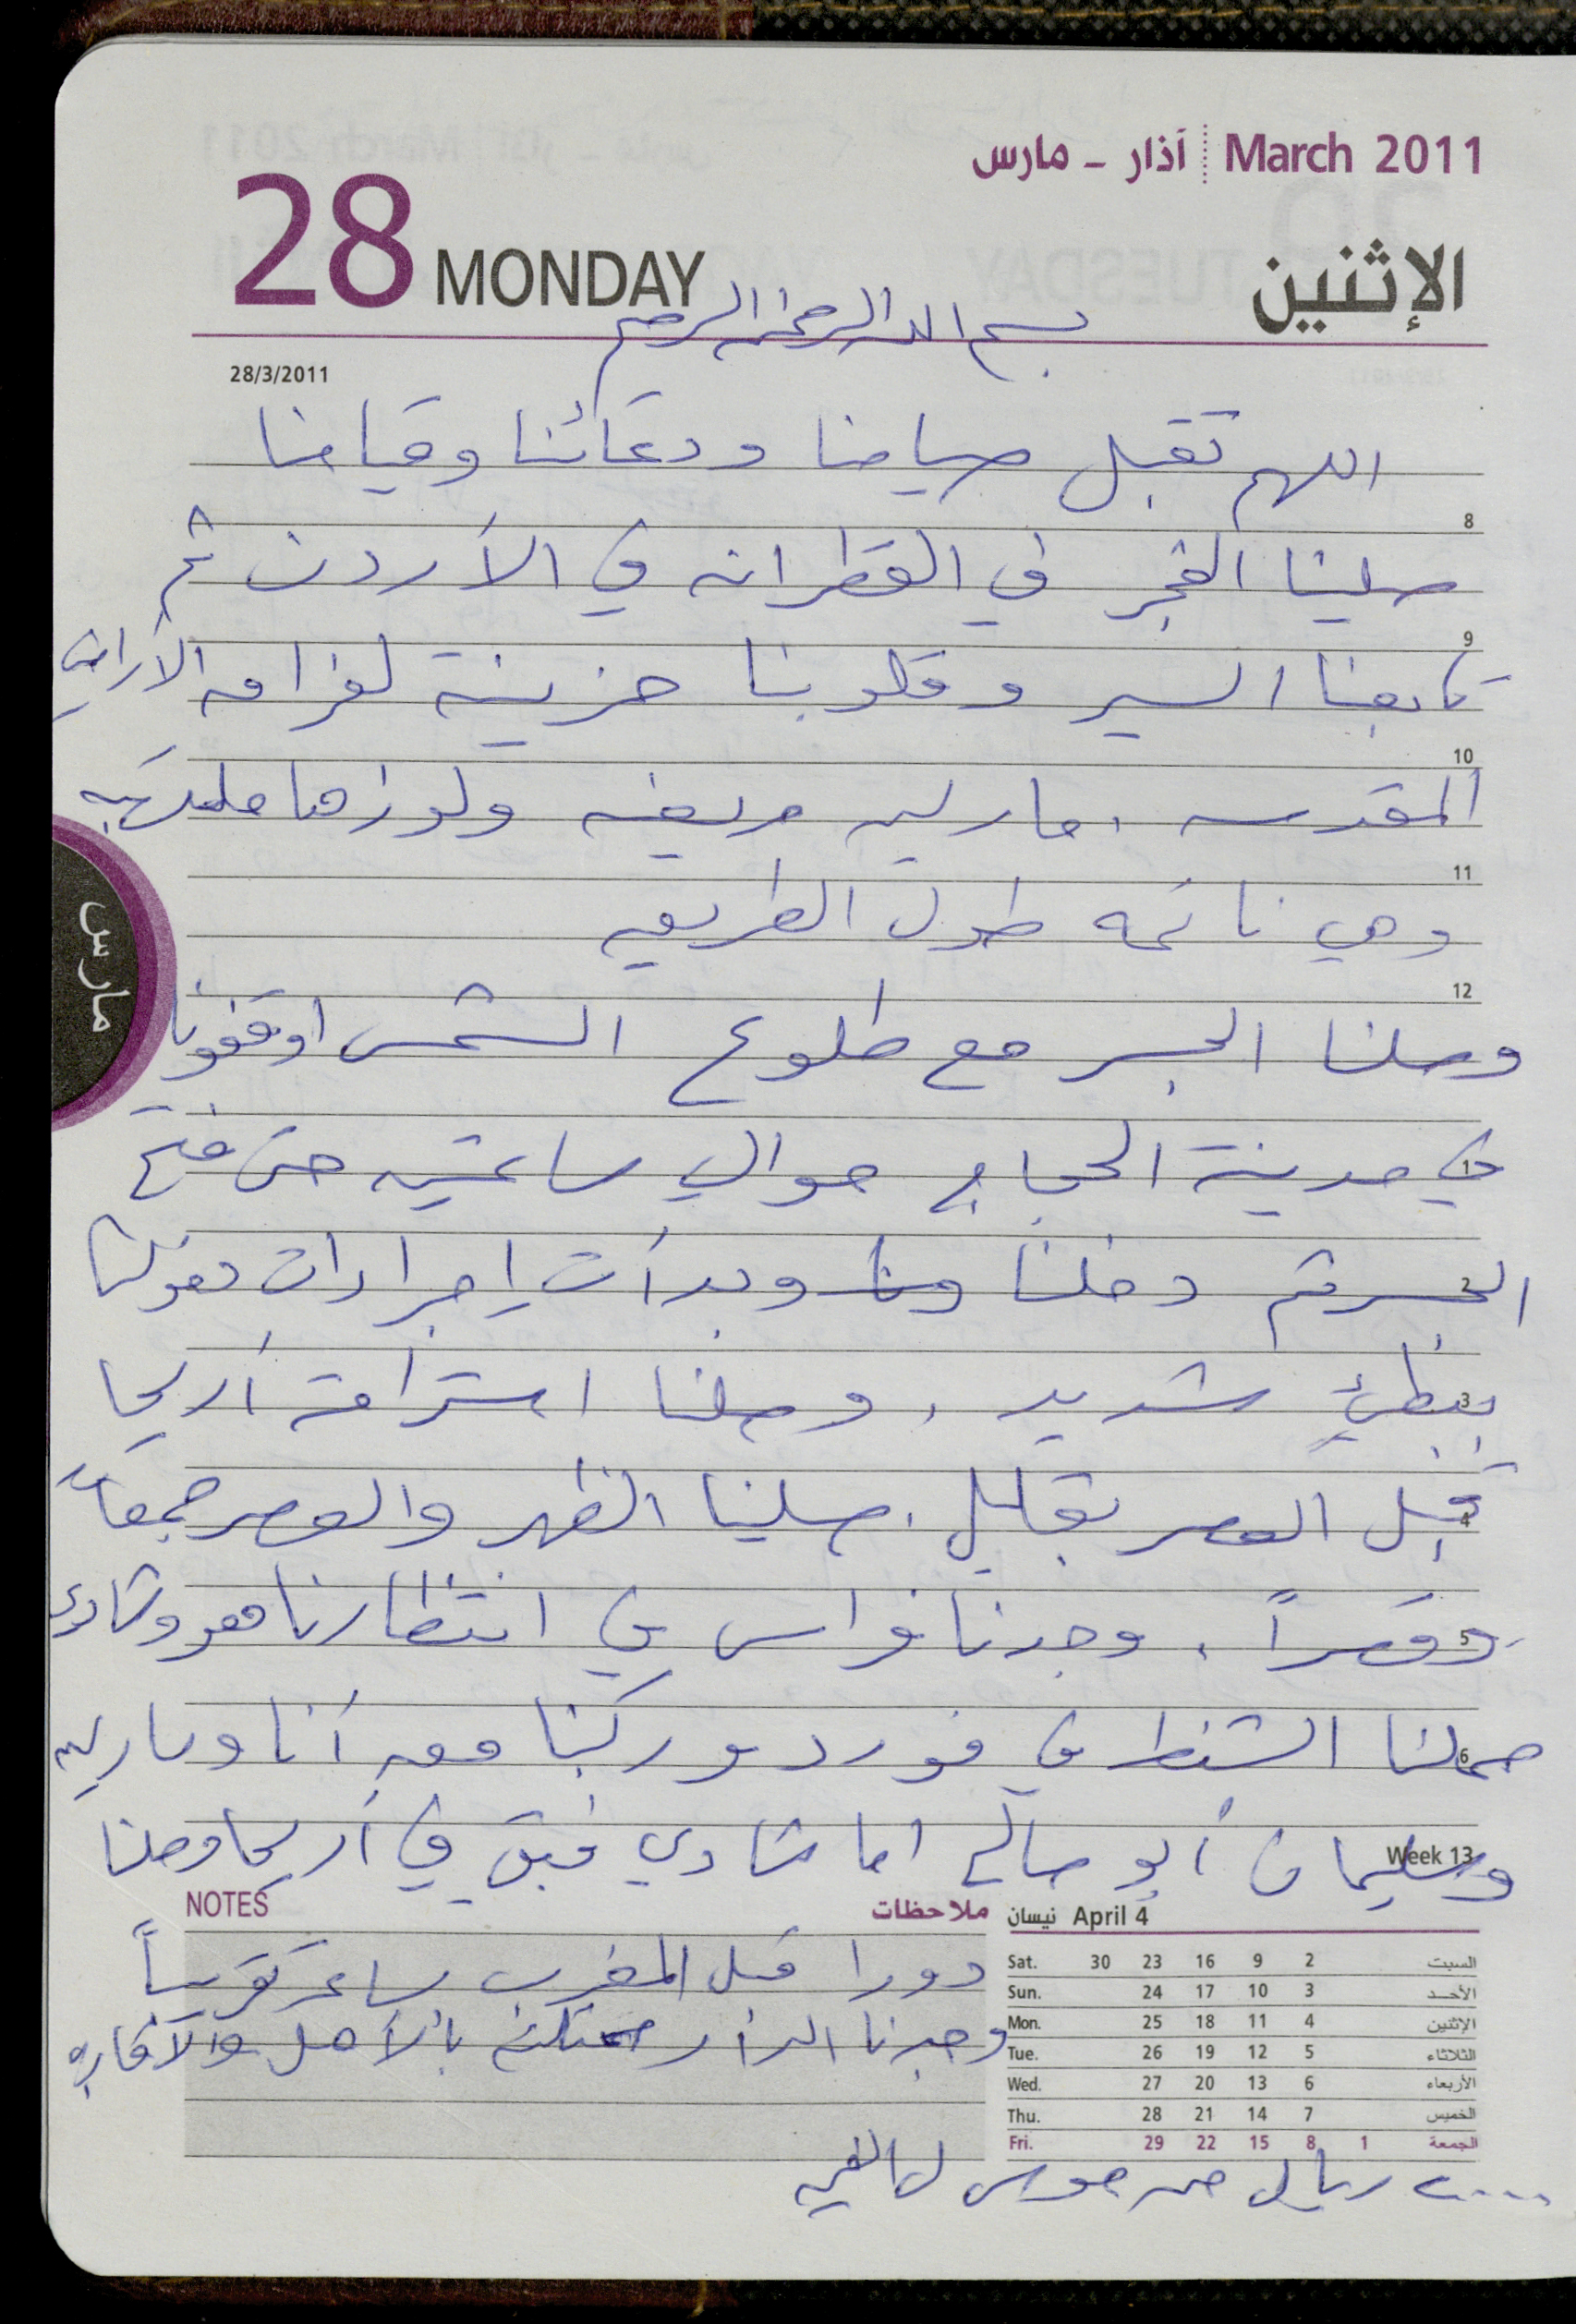 March 2011 آذار - مارس
28 MONDAY الإثنين
بسم الله الرحمن الرحيم
28/3/2011
اللهم تقبل صيامنا ودعائنا وقيامنا
8
صلينا الفجر في القطرانه في الأردن ثم
9
تابعنا السير وقلوبنا حزينة لفراق الأراضي
10
المقدسه . مارلين مريضه ولوزها ملتهبه
11
وهي نائمه طول الطريق
12
وصلنا الجسر مع طلوع الشمس اوقفونا
في مدينة الحجاج حوالي ساعتين حتى فتح
1
الجسر ثم دخلنا وبدأت إجراءات دخولنا
2
ببطئ شديد . وصلنا استراحة أريحا
3
قبل العصر بقليل . صلينا الظهر والعصر جمعاً
4
وقصراً . وجدنا فراس في انتظارنا هو وشادي
5
حملنا الشنط في فورد وركبنا معه أنا ومارلين
6
وسليمان أبو صالح اما شادي فبقي في أريحا وصلنا
Week 13
مارس
NOTES ملاحظات
دورا قبل المغرب بساعة تقريباً
وجدنا الدار ممتلئة بالأهل والأقارب
April 4 نيسان
Sat. 30 23 16 9 2 السبت
Sun. 24 17 10 3 الأحد
Mon. 25 18 11 4 الإثنين
Tue. 26 19 12 5 الثلاثاء
Wed. 27 20 13 6 الأربعاء
Thu. 28 21 14 7 الخميس
Fri. 29 22 15 8 1 الجمعة
ريال من موسى